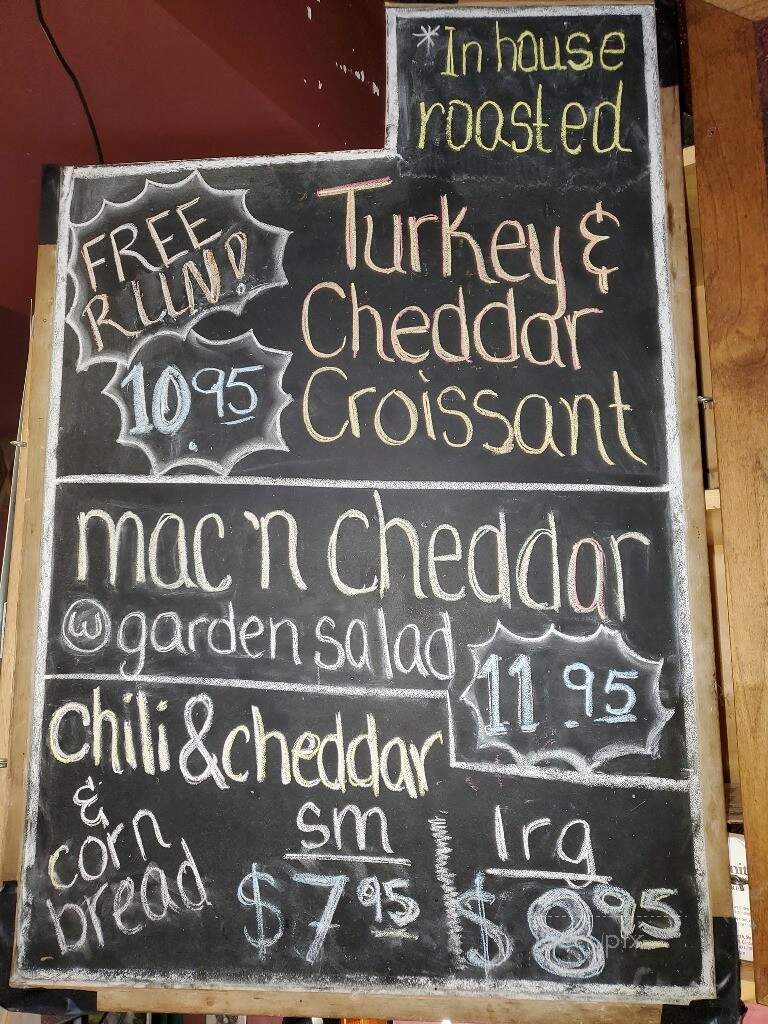 *In house
roasted
FREE
RUN!
10.95
Turkey &
Cheddar
Croissant
mac 'n cheddar
w garden salad
11 95
chili & cheddar
&
corn
bread
sm
$7 95
lrg
$8 95
pix